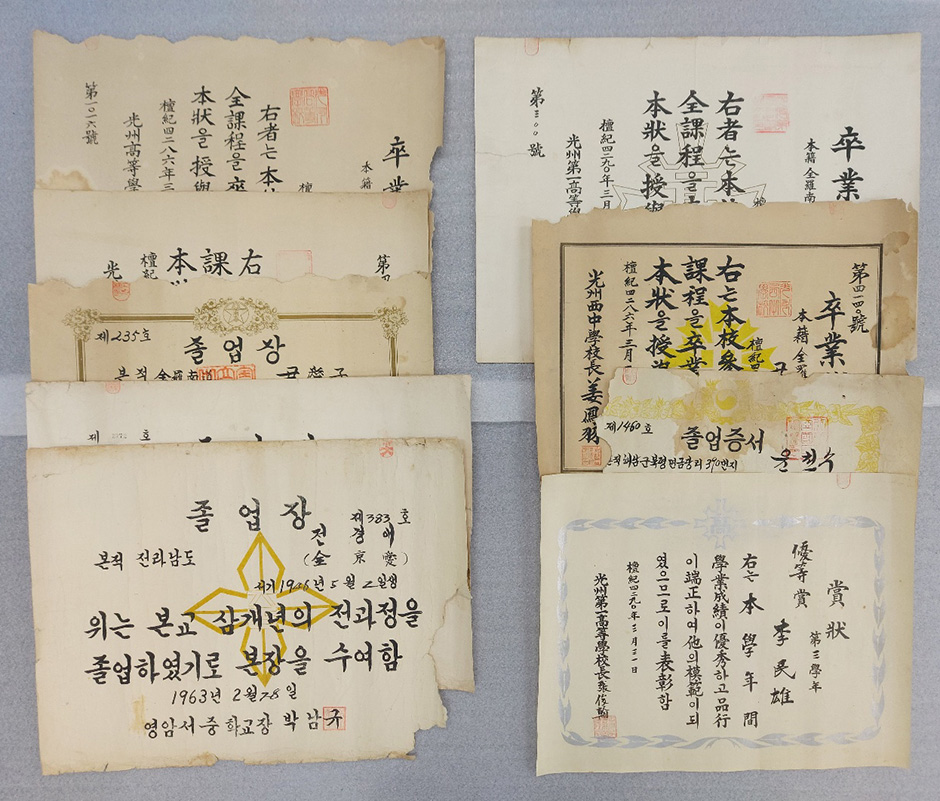 卒業
本籍
右者는本
全課程을卒
本狀을授與
檀紀四二八六年三
光州高等學
第一0一六號
第
右
課
本
檀紀
光
제235호
졸업장
본적 全羅南道
제 호
졸업장
제383호
전경애
본적 전라남도
(全京愛)
서기19 6년5월2일생
위는 본교 삼개년의 전과정을
졸업하였기로 본장을 수여함
1963년 2월 28일
영암서중학교장 박남규
卒業
本籍 全羅南
右者는本
全課程을
本狀을授與
檀紀四二九0年三月
光州第一高等學
第三00號
第四一四0號
卒業
本籍 全羅
檀紀四
右는本校
課程을卒業
本狀을授與
檀紀四二八六年三月
光州西中學校長姜鳳羽
제1460호
졸업증서
본적 해남군북평면금강리390번지
윤철수
賞狀
第三學年
優等賞 李民雄
右는本學年間
學業成績이優秀하고品行
이端正하여他의模範이되
였으므로이를表彰함
檀紀四二九0年三月二一日
光州第一高等學校長張俊翰